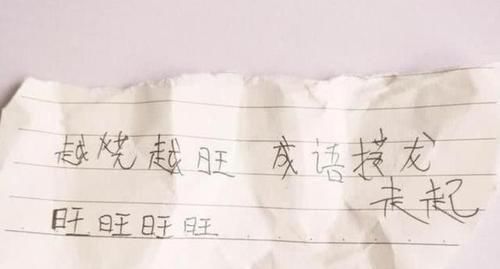 越烧越旺 成语接龙
走起
旺旺旺旺